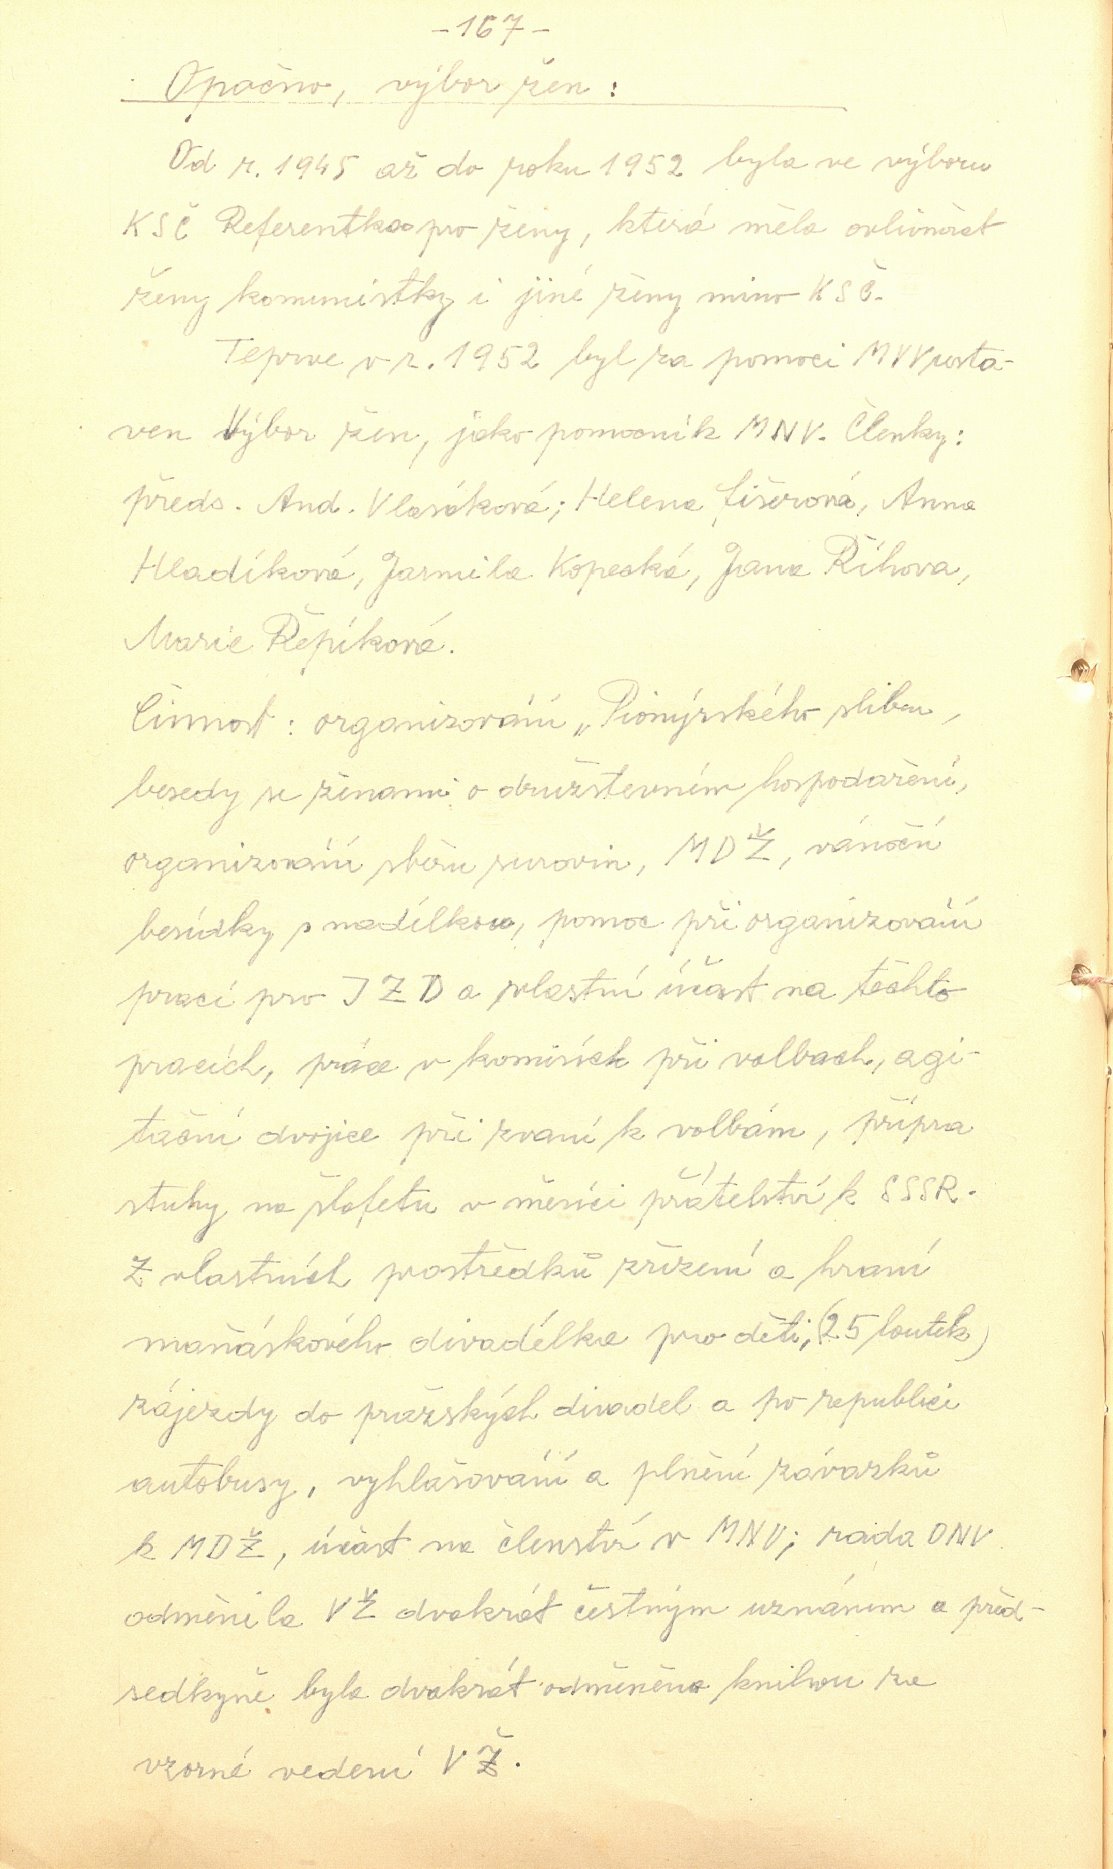 -167-
Opočno, výbor žen :
Od r. 1945 až do roku 1952 byla ve výboru
KSČ Referentka pro ženy, která měla ovlivňovat
ženy komunistky i jiné ženy mimo KSČ.
Teprve v r. 1952 byl za pomoci MVV usta-
ven Výbor žen, jako pomocník MNV. Členky:
předs. And. Vlasáková; Helena Lišerová, Anna
Hladíková, Jarmila Kopecká, Jana Říhova,
Marie Řepíková.
Činnost : organizování „Pionýrského slibu,
besedy se ženami o družstevním hospodaření,
organizování sběru surovin, MDŽ, vánoční
besídky s nadílkou, pomoc při organizování
prací pro JZD a vlastní účast na těchto
pracích, práce v komisích při volbach, agi-
tační dvojice při zvaní k volbám, přípra
stuhy na štafetu v měsíci přátelství k SSSR.
Z vlastních prostředků zřízení a hraní
maňáskového divadélka pro děti, (25 loutek)
zájezdy do pražských divadel a po republici
autobusy, vyhlašování a plnění závazků
k MDŽ, účast na členství v MNV; rada ONV
odměnila VŽ dvakrát čestným uznáním a před-
sedkyně byla dvakrát odměněna knihou za
vzorné vedení VŽ.